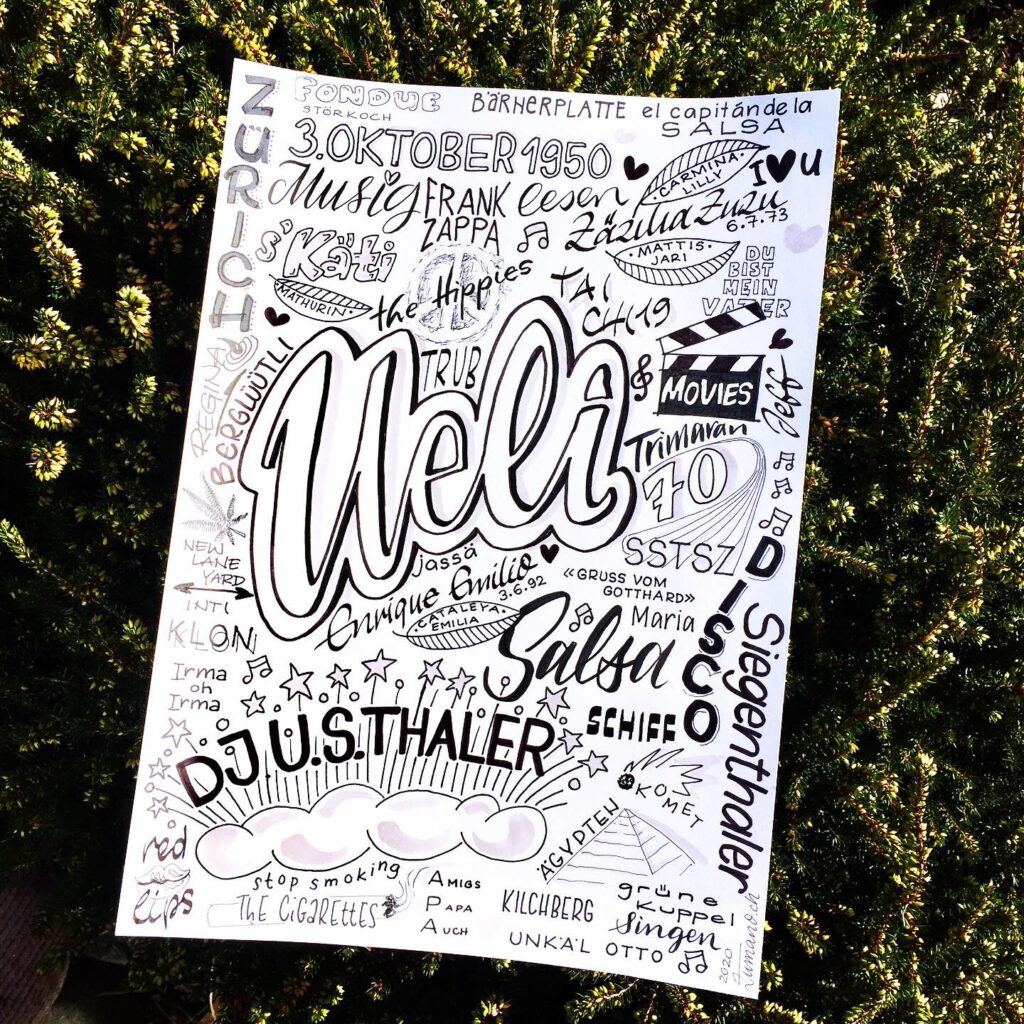 ZÜRICH
FONDUE
3 TÖRKOCH
BÄRNERPLATTE
el capitán de la
SALSA
3. OKTOBER 1950
CARMINA·
LILLY
I ♥ U
Musig
FRANK
ZAPPA
lesen
Zäzilia Zuzu
6.7.73
s'Käti
MATTIS·
JARI
DU
BIST
MEIN
VATER
MATHURIN·
the Hippies
TAI
CHI 19
TRUB
Ueli
MOVIES
Jeff
REGINA
BERGLWÜTLI
Trimaran
70
SSTSZ
NEW
LANE
YARD
jassä
Enrique Emilio
3.6.92
«GRUSS VOM
GOTTHARD»
INTI
CATALEYA·
EMILIA
Maria
DISCO
Siegenthaler
KLON
Salsa
Irma
oh
Irma
DJ.U.S.THALER
SCHIFF
KOMET
ÄGYPTEN
red
lips
stop smoking
THE CiGAREttES
AMIGS
PAPA
AUCH
KILCHBERG
UNKÄL OTTO
grüne
Kuppel
Singen
2020
Lumano.ch